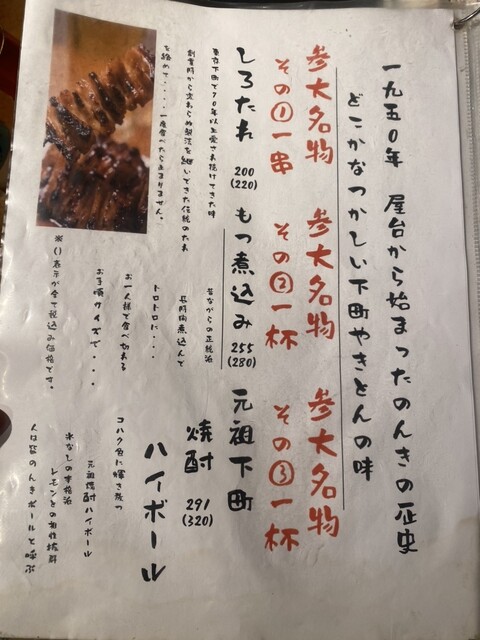 一九五〇年 屋台から始まったのんきの歴史
どこかなつかしい下町やきとんの味
参大名物
その①一串
しろたれ
200
(220)
東京下町で70年以上愛され続けてきた味
創業時から変わらぬ製法を継いできた伝統のたれ
を絡めて・・・一度食べたらたまりません。
参大名物
その②一杯
もつ煮込み
255
(280)
昔ながらの正統派
長時間煮込んで
トロトロに・・・
お一人様で食べ切れる
お手頃サイズで・・・
参大名物
その③一杯
元祖下町
焼酎
291
(320)
ハイボール
コハク色に輝き放つ
元祖焼酎ハイボール
氷なしの本格派
レモンとの相性抜群
人は皆のんきボールと呼ぶ
※()表示が全て税込み価格です。